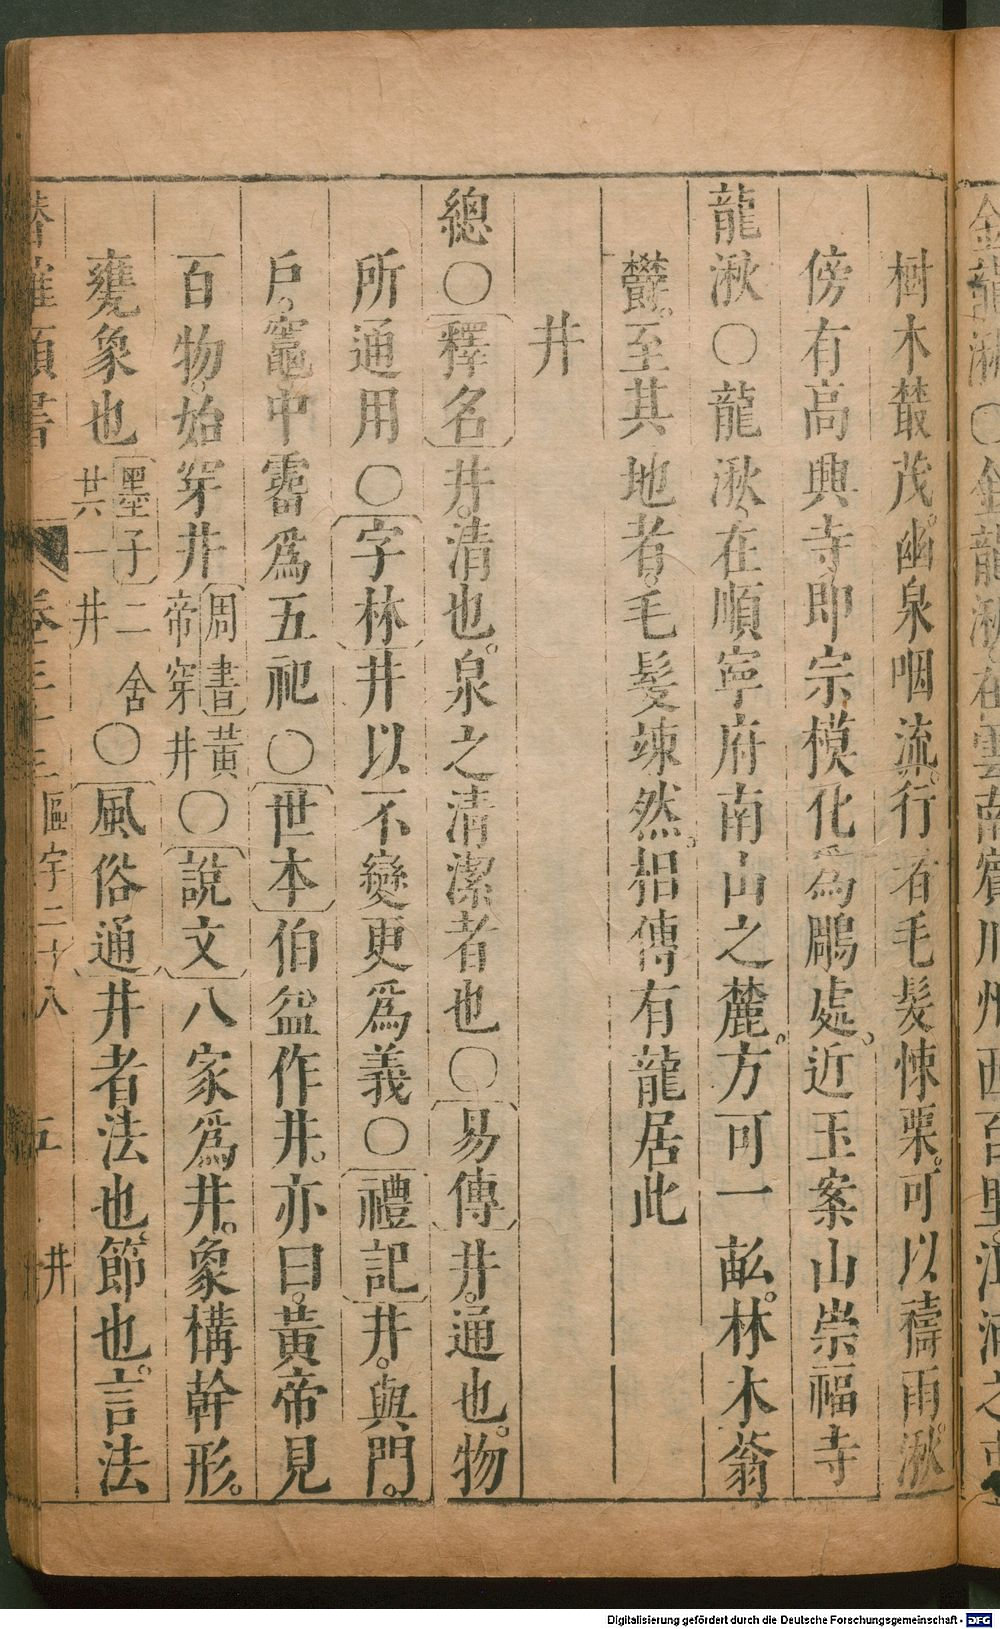 金龍湫〇金龍湫在雲南賓川州西百里
樹木䕺茂。幽泉咽流。行者毛髮悚栗。可以禱雨。湫
傍有高興寺。即宗模化為鵰處。近玉案山崇福寺
龍湫〇龍湫。在順寧府南山之麓。方可一畝。林木蓊
鬱。至其地者。毛髮竦然。相傳有龍居此
井
總〇釋名井。清也。泉之清潔者也〇易傳井。通也。物
所通用〇字林井以不變更爲義〇禮記井。與門。
戶。竈中霤爲五祀〇世本伯益作井。亦曰。黃帝見
百物。始穿井周書黃帝穿井〇說文八家爲井。象構幹形。
甕象也墨子二舍共一井〇風俗通井者法也。節也。言法
卷三十三 區宇二十八 五 井
Digitalisierung gefördert durch die Deutsche Forschungsgemeinschaft - DFG